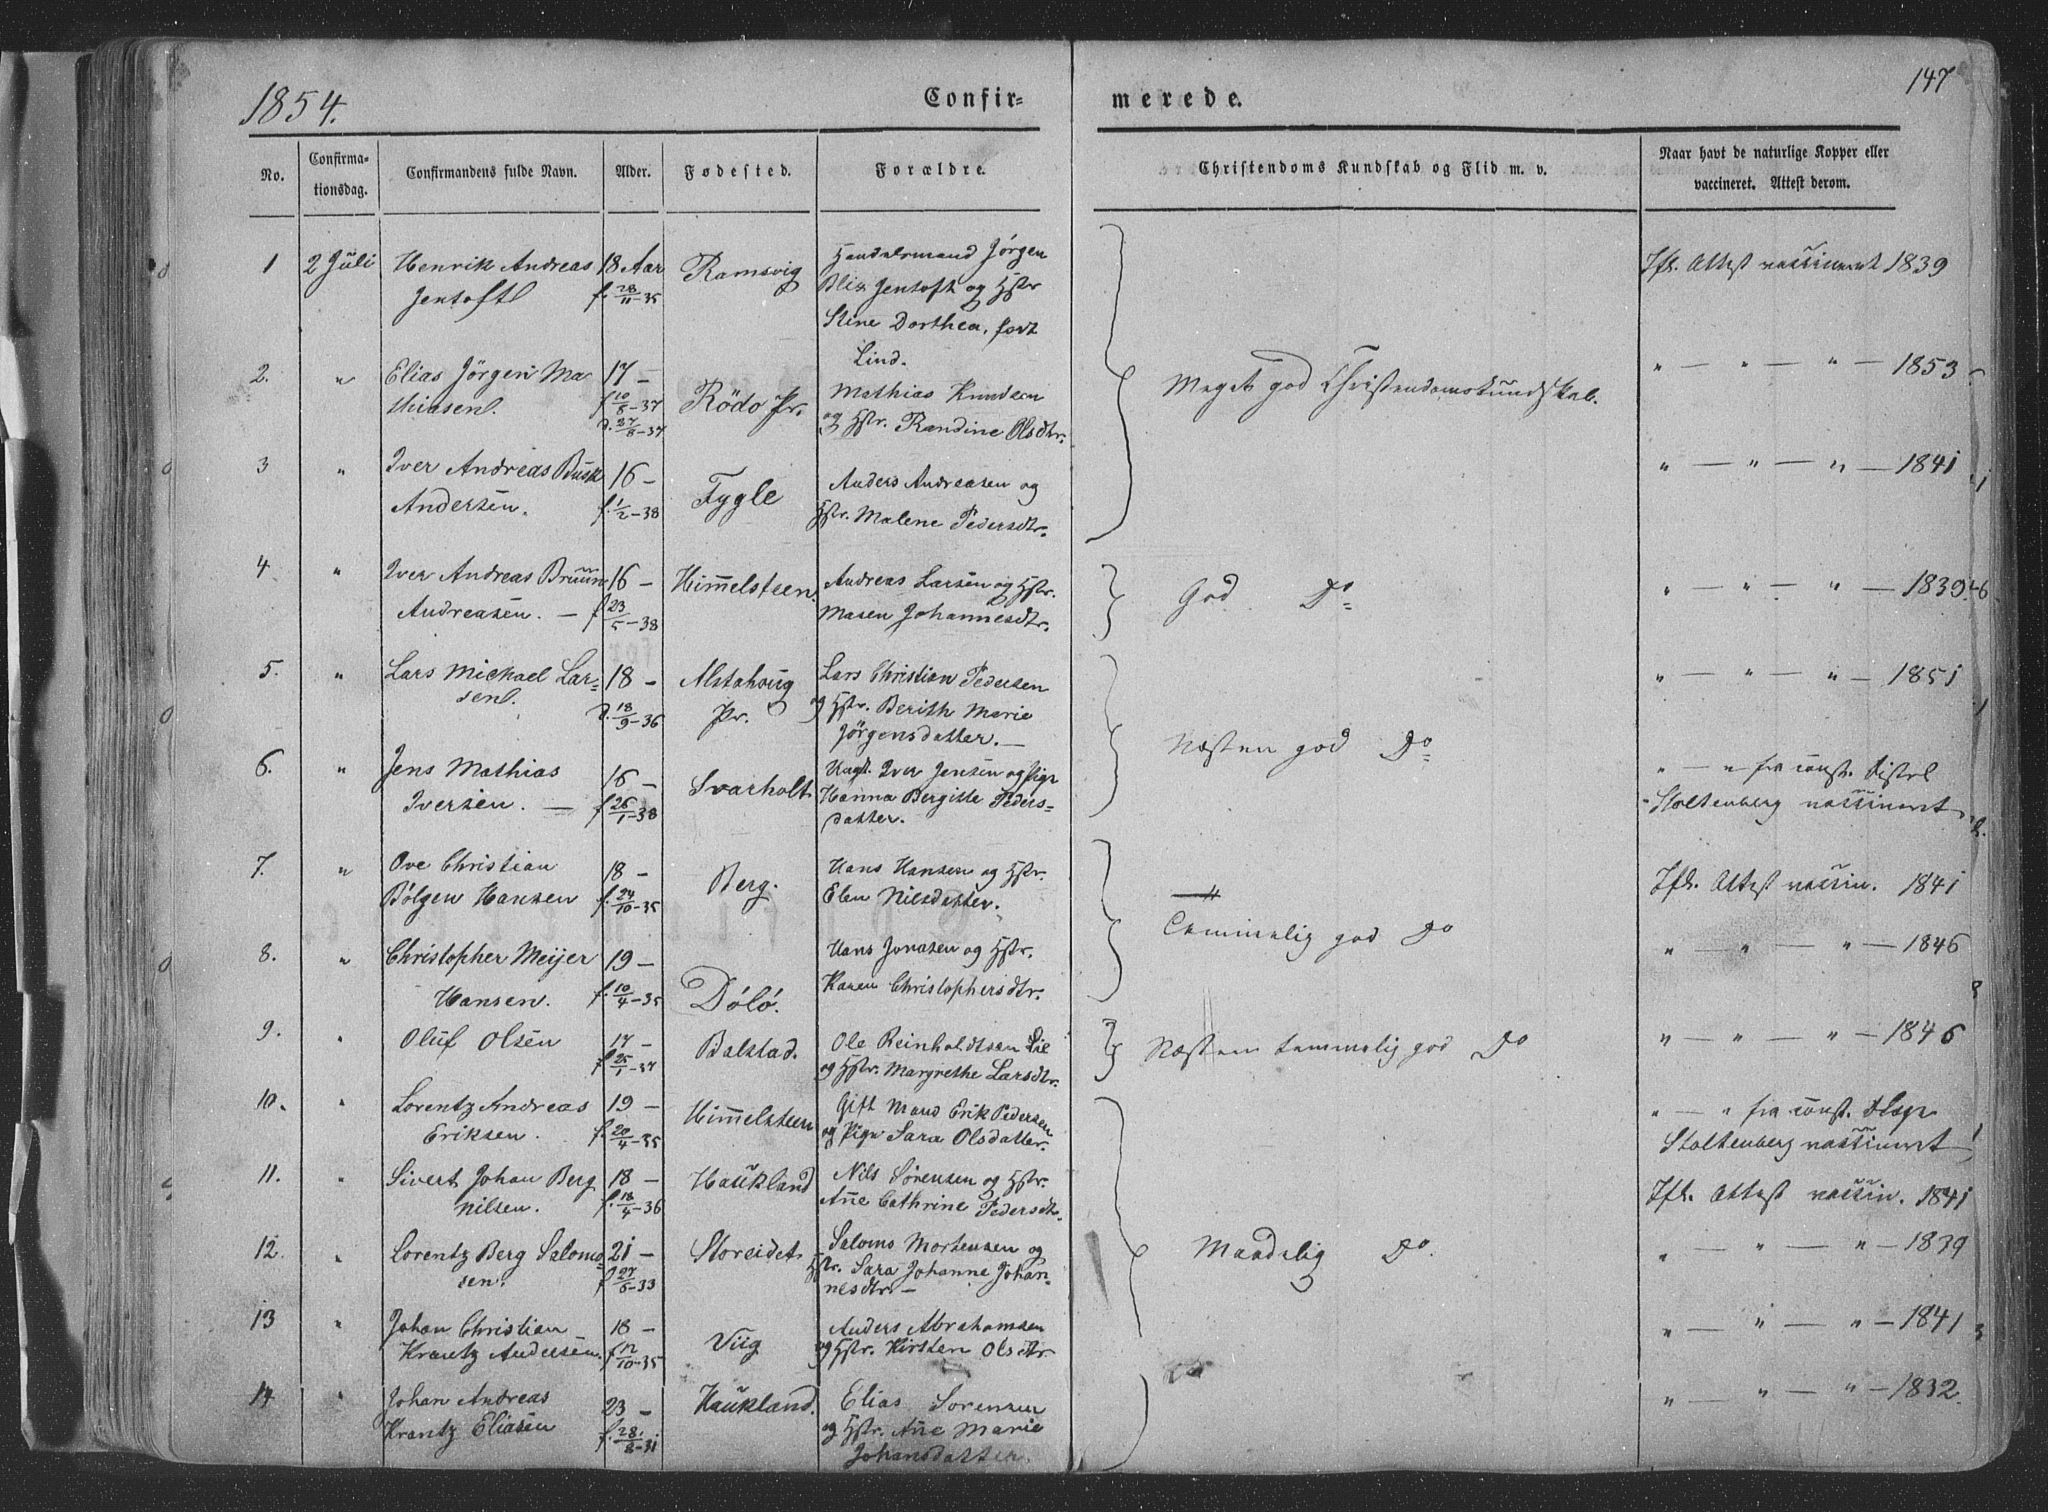 1854.
Confir-
merede.
147
No.
Confirma-
tionsdag.
Confirmandens fulde Navn.
Alder.
Fødested.
Forældre.
Christendoms Kundskab og Flid m. v.
Naar havt de naturlige Kopper eller
vaccineret. Attest derom.
1 2 Juli Henrik Andreas 18 Aar Ramsvig Handelsmand Jörgen
Jentoft f. 28/11-35 Blix Jentoft og Hstr
Stine Dorthea, født
Lind.
Ifl. Attest vaccineret 1839
2. " Elias Jörgen Ma 17 - Rödö Pr. Mathias Knudsen
thiasen. f 10/8-37 og Hstr. Randine Olsdtr.
d. 27/8-37
Meget god Christendomskundskab.
" — " — " — 1853
3 " Iver Andreas Busk 16 - Fygle Anders Andreasen og
Andersen. f. 1/2-38 Hstr. Malene Pedersdtr.
" — " — " — 1841
4 " Iver Andreas Bruun 16 - Himmelsteen. Andreas Larsen og Hstr.
Andreasen. — f 23/5-38 Maren Johannesdtr.
God Do
" — " — " — 1839
5. " Lars Michael Lar= 18 - Alstahoug Lars Christian Pedersen
sen. d. 18/9-36 Pr. og Hstr. Berith Marie
Jörgensdatter. —
" — " — " — 1851
Næsten god Do
6. " Jens Mathias 16 - Svarholt Ungk. Iver Jensen og Pige
Iversen. — f 26/1-38 Hanna Bergitte Peders-
datter.
" — " fra const. Distel
Stoltenberg vaccineret
7. " Ove Christian 18 - Berg. Hans Hansen og Hstr.
Bölgen Hansen f. 24/10-35 Elen Nilsdatter.
Ifl. Attest vaccin. 1841
Temmelig god Do
8. " Christopher Meijer 19 - Dölö. Hans Jonasen og Hstr.
Hansen. f. 10/4-35 Karen Christophersdtr.
" — " — " — 1846
9. " Oluf Olsen 17 - Balstad. Ole Reinholdtsen Lie
f 25/1-37 og Hstr. Margrethe Larsdtr.
Næsten temmelig god Do
" — " — " — 1846
10. " Lorentz Andreas 19 - Himmelsteen Gift Mand Erik Pedersen
Eriksen. f. 20/4-35 og Pige Sara Olsdatter.
" — " fra const.
Stoltenberg vaccineret
11. " Sivert Johan Berg 18 - Haukland Nils Sørensen og Hstr.
Nilsen. f. 18/4-36 Ane Cathrine Pedersdtr.
Ifl. Attest vaccin. 1841
12. " Lorentz Berg Salomo 21 - Storeidet Saloms Mortensen og
sen. f 27/6-33 Hstr. Sara Johanne Johan-
nesdtr. —
Maadelig Do.
" — " — " — 1839
13 " Johan Christian 18 - Viig Anders Abrahamsen
Krantz Andersen. f 12/10-35 og Hstr. Kirsten Olsdtr.
" — " — " — 1841
14 " Johan Andreas 23 - Haukland. Elias Sørensen
Krantz Eliasen f. 28/8-31 og Hstr. Ane Marie
Johansdatter.
" — " — " — 1832.